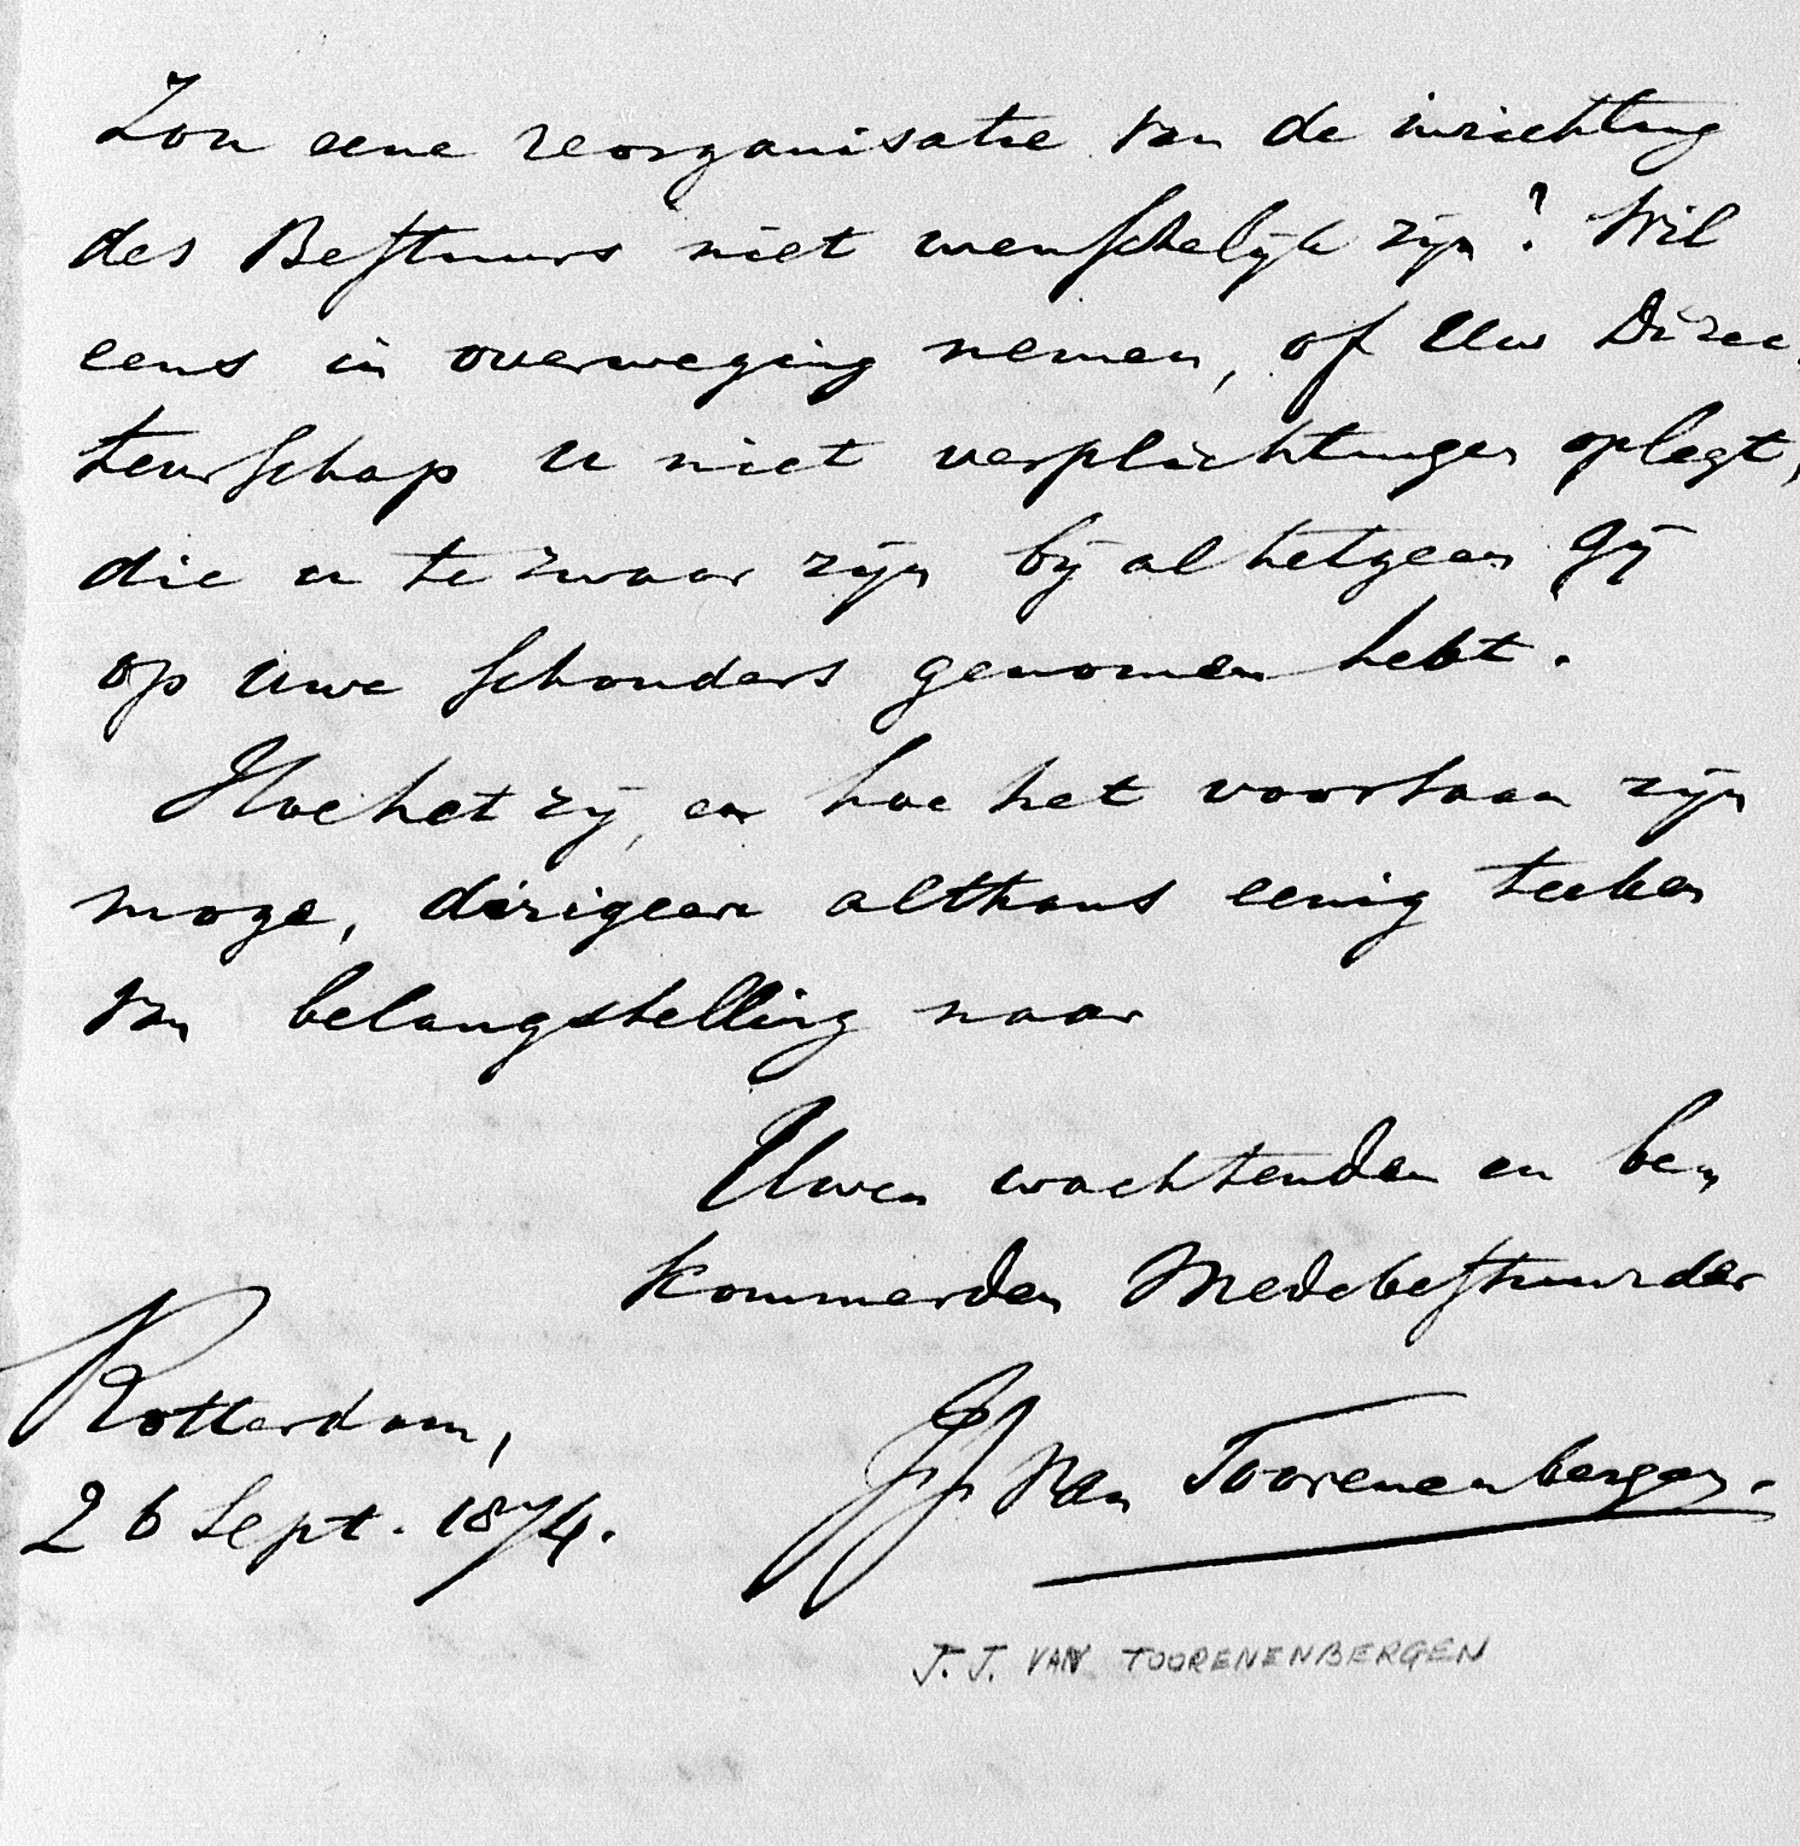 Zou eene reorganisatie van de inrichting
des Bestuurs niet wenschelijk zijn? Wil
eens in overweging nemen, of Uw Direc-
teurschap u niet verplichtingen oplegt,
die u te zwaar zijn bij al hetgeen gij
op uwe schouders genomen hebt.
Hoe het zij, en hoe het voortaan zijn
moge, dirigeer althans eenig teeken
van belangstelling naar
Uwen wachtenden en be-
kommerden Medebestuurder
JJ van Toorenenbergen.
Rotterdam,
26 Sept. 1874.
J. J. VAN TOORENENBERGEN